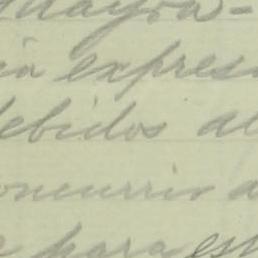 Mayor-
ia expres
debidos al
concurrir a
para est